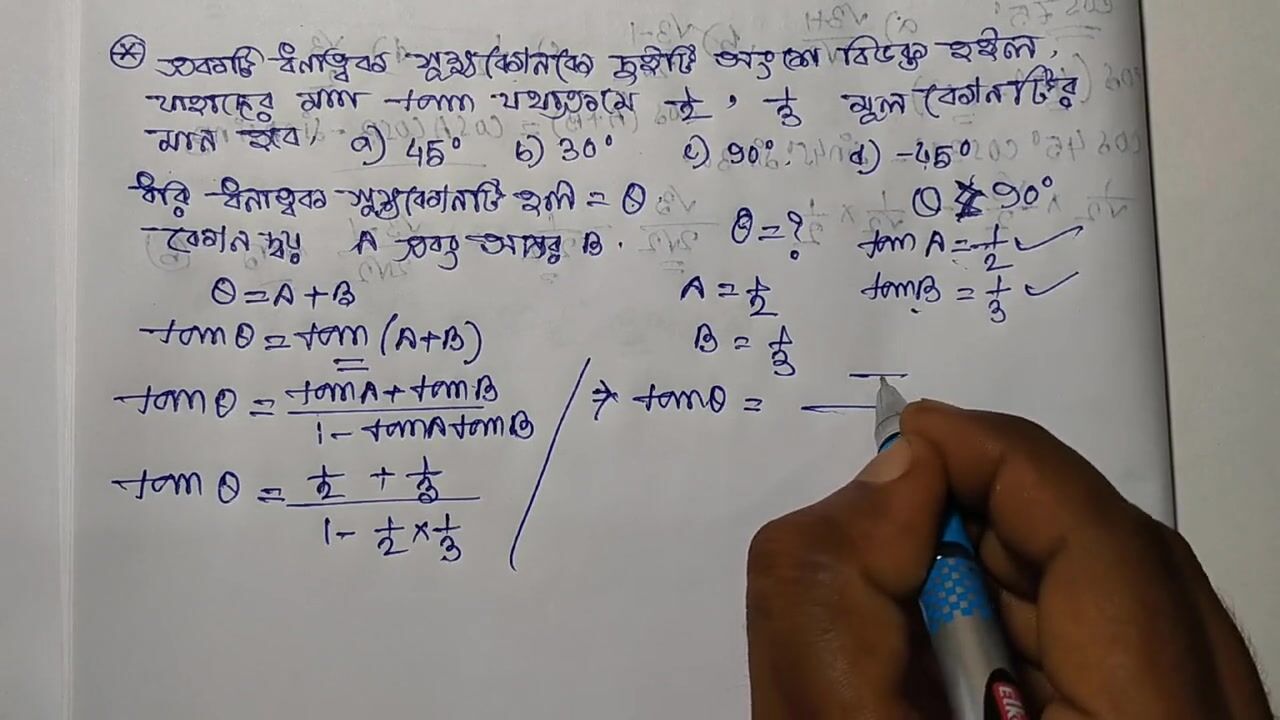 একটি ধনাত্বক সূক্ষ্মকোনকে দুইটি অংশে বিভক্ত হইল,
যাহাদের মান tan যথাক্রমে 1/2, 1/3 মূল কোনটির
মান হবে, a) 45° b) 30° c) 90°. d) -45°
ধরি ধনাত্বক সূক্ষ্মকোনটি হল = θ
θ = ? θ 90°
কোনদ্বয় A এবং অপর B.
tan A = 1/2 ✓
θ = A + B
A = 1/2
tan B = 1/3 ✓
tan θ = tan (A+B)
B = 1/3
tan θ = (tan A + tan B) / (1 - tan A tan B)
⇒ tan θ =
tan θ = (1/2 + 1/3) / (1 - 1/2 × 1/3)